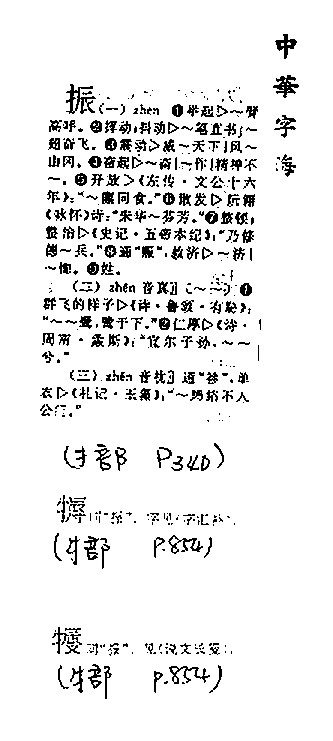 中華字海
振(一)zhèn ❶举起▷~臂
高呼。❷挥动;抖动▷~笔直书|~
翅奋飞。❸震动▷威~天下|风~
山冈。❹奋起▷~奋|~作|精神不
~。❺开放▷《左传·文公十六
年》:“~廪同食。”❻散发▷阮籍
《咏怀》诗:“朱华~芬芳。”❼整顿;
整治▷《史记·五帝本纪》:“乃修
德~兵。”❽通“赈”,救济▷~济|
~恤。❾姓。
(二)zhēn音真〖~~〗❶
群飞的样子▷《诗·鲁颂·有駜》:
“~~鹭,鹭于下。”❷仁厚▷《诗·
周南·螽斯》:“宜尔子孙,~~
兮。”
(三)zhěn音枕〗通“袗”,单
衣▷《礼记·玉藻》:“~絺绤不入
公门。”
(扌部 P340)
同“振”。字见《字汇补》。
(牛部 P.854)
同“振”。见《说文长笺》。
(牛部 P.854)